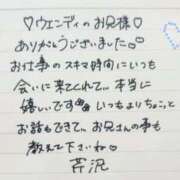 ♡ウェンディのお兄様♡
ありがとうございました
お仕事のスキマ時間にいつも
会いに来てくれて、、本当に
嬉しいです いつもよりちょこっと
お話もできて、、お兄さんの事も
教えて下さいね♡
芹沢